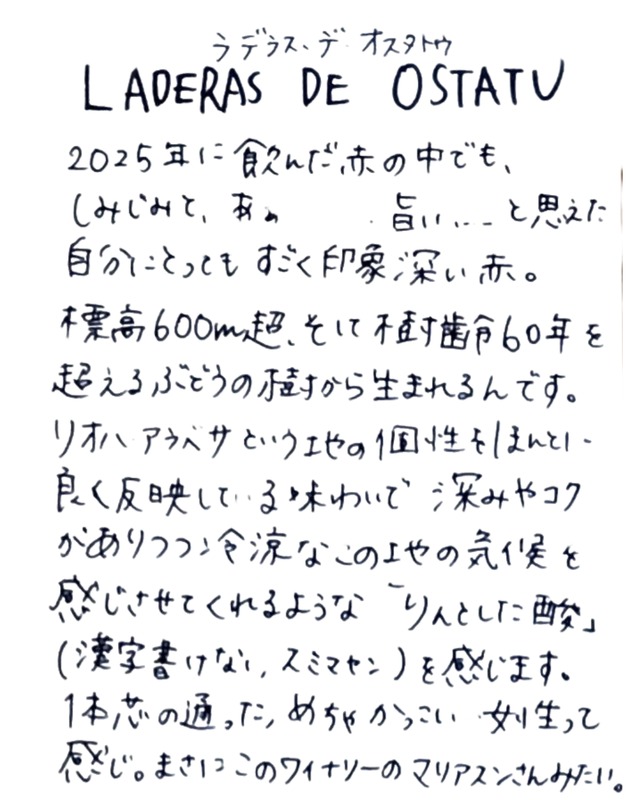 ラデラス・デ・オスタトウ
LADERAS DE OSTATU
2025年に飲んだ赤の中でも、
しみじみと、あぁ 旨い... と思えた
自分にとっても すごく印象深い赤。
標高600m超、そして樹齢60年を
超えるぶどうの樹から生まれるんです。
リオハ アラベサ という土地の個性をほんとに
良く反映している味わいで 深みやコク
がありつつ冷涼なこの土地の気候を
感じさせてくれるような 「りんとした酸」
(漢字書けない、スミマセン)を感じます。
1本芯の通った、めちゃかっこいい 女性って
感じ。まさにこのワイナリーの マリアスンさんみたい。